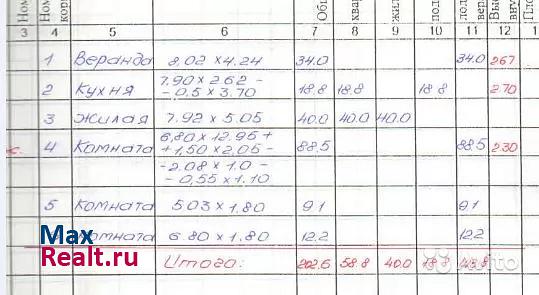 3 4 5 6 7 8 9 10 11 12 1
1 Веранда 8.02 × 4.24 34.0 34.0 267
2 Кухня 7.90 × 2.62 - 18.8 18.8 18.8 2.70
- 0.5 × 3.70
3 Жилая 7.92 × 5.05 40.0 40.0 40.0
4 Комната 6,80 × 12.95 + 88.5 88.5 2.30
+ 1,50 × 2.05 -
- 2.08 × 1.0 -
- 0,55 × 1.10
5 Комната 5.03 × 1.80 9.1 9.1
Комната 6.80 × 1.80 12.2 12.2
Итого: 202.6 58.8 40.0 18.8
Max
Realt.ru
Avito